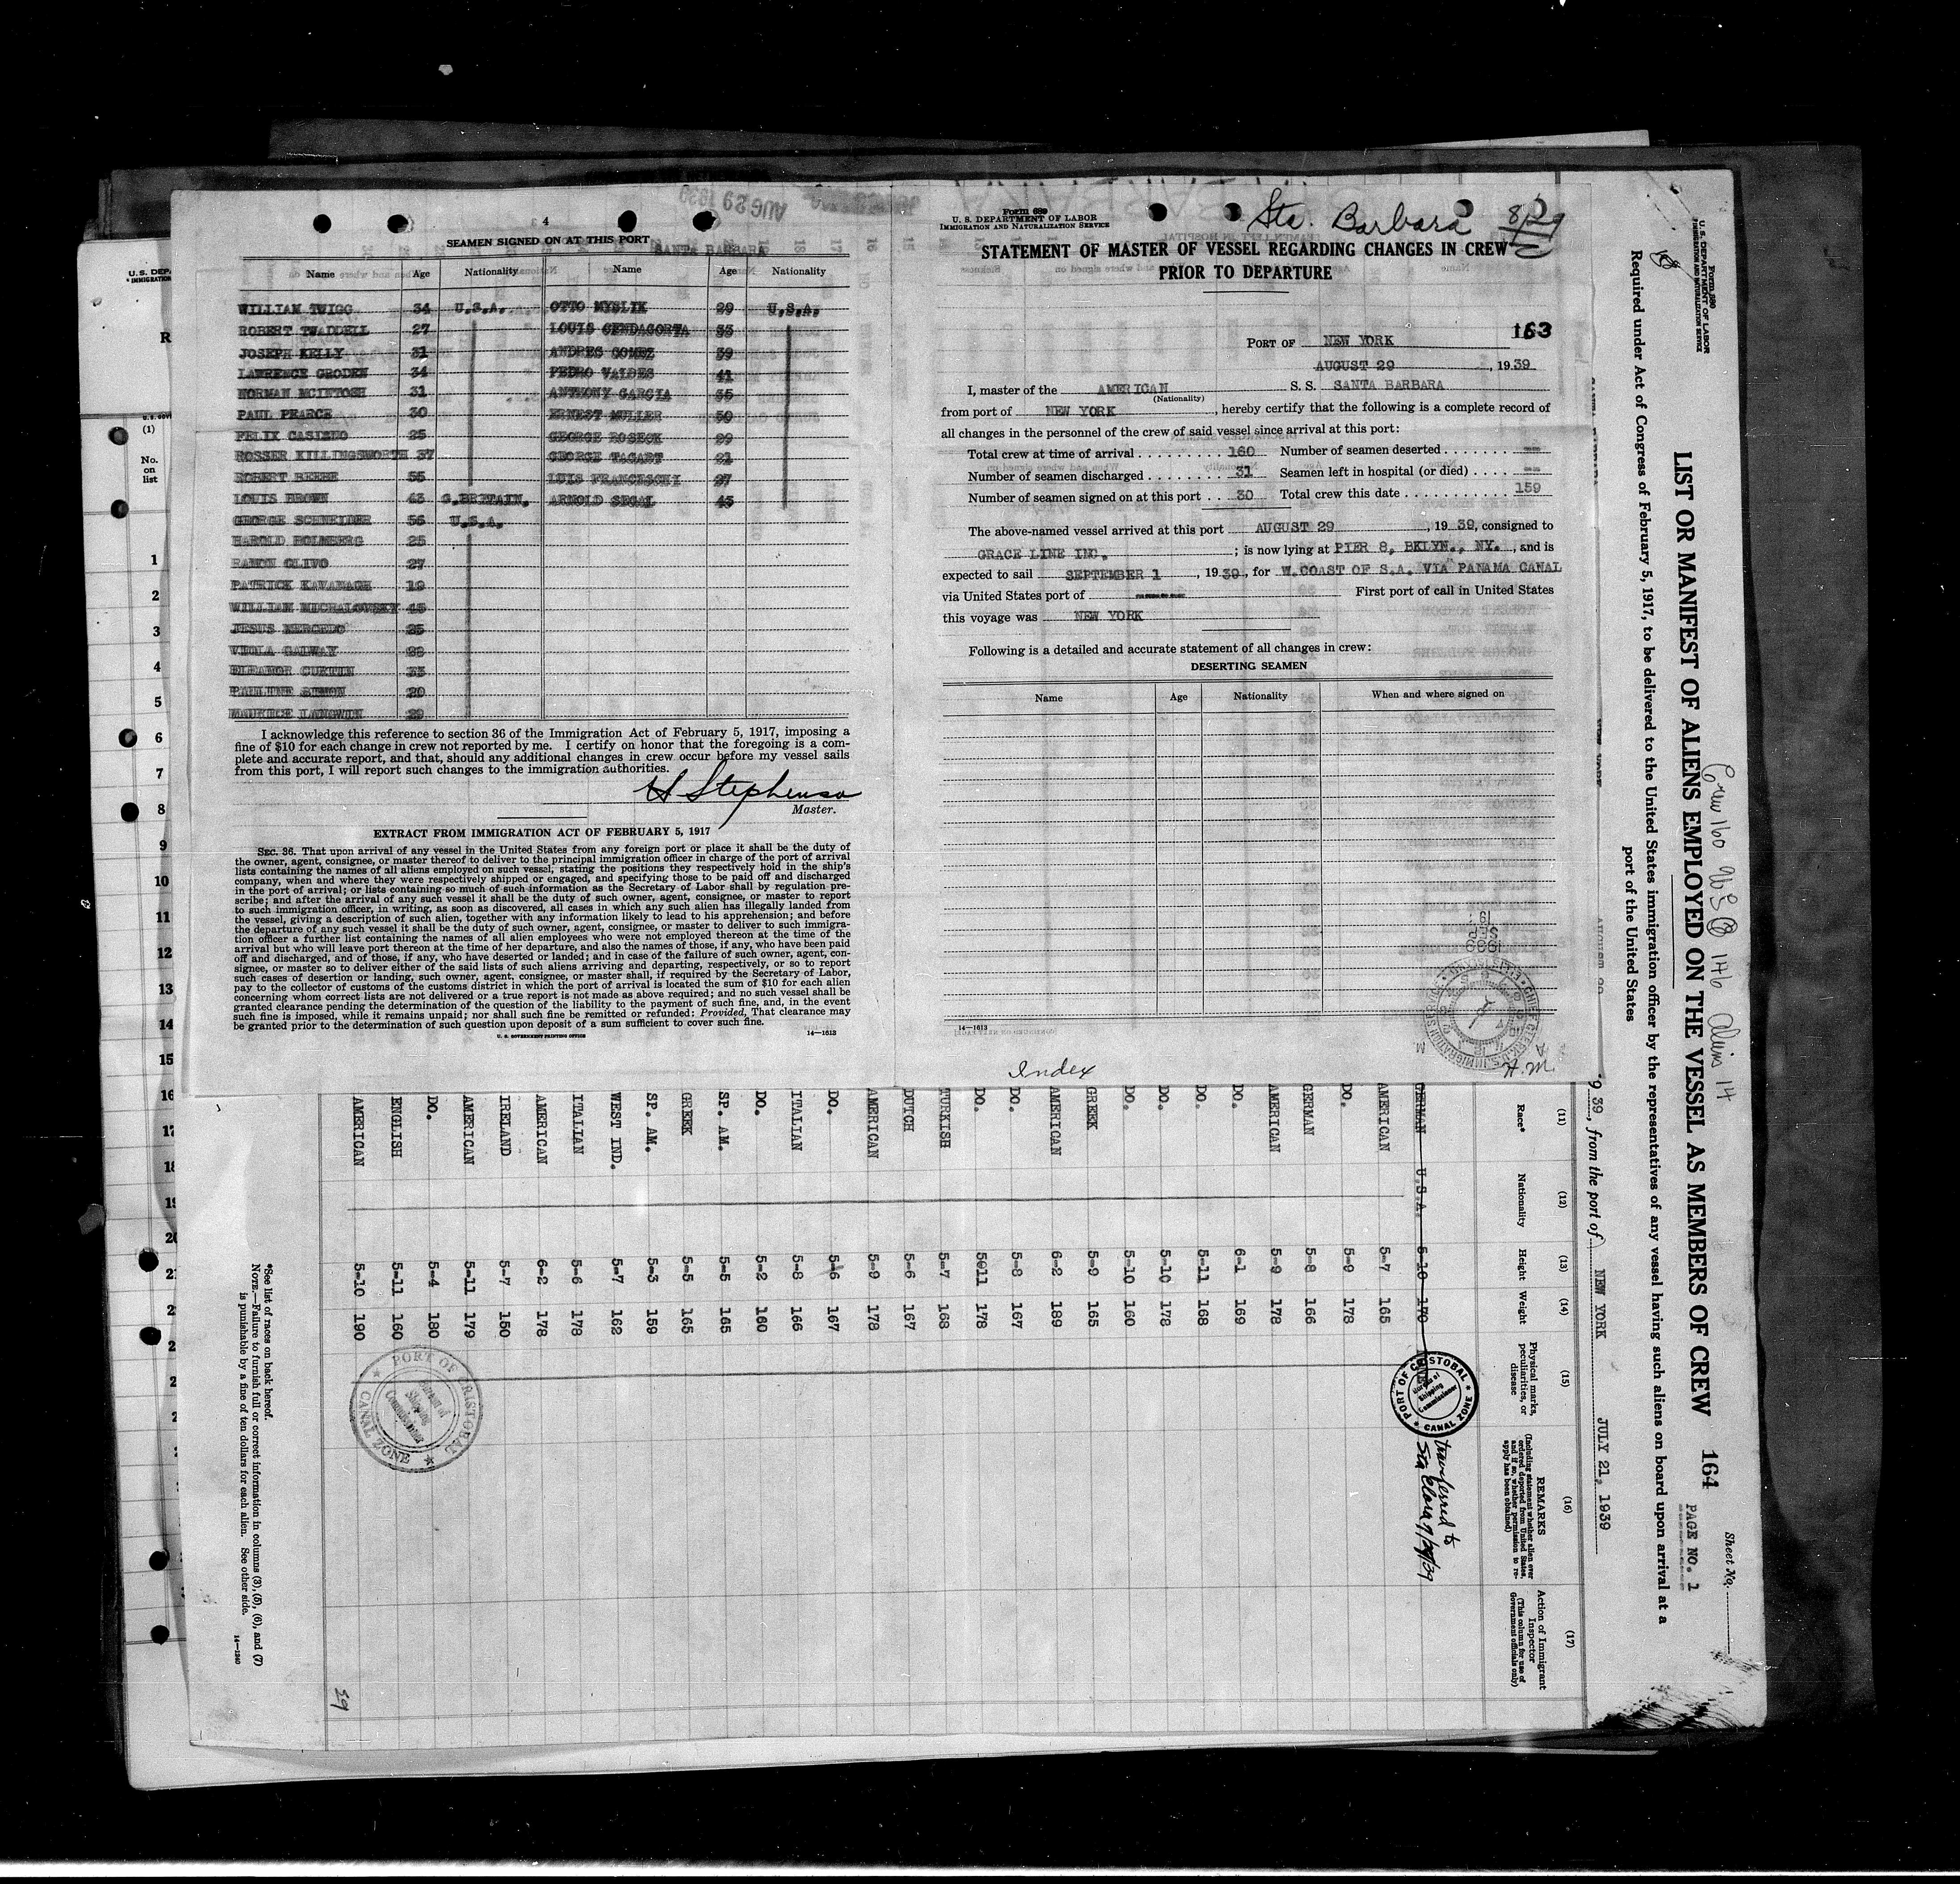 4
SEAMEN SIGNED ON AT THIS PORT
SANTA BARBARA
AUG 29 1939
Name Age Nationality Name Age Nationality
WILLIAM TWIGG 34 U.S.A. OTTO MYSLIK 29 U.S.A.
ROBERT TWADDELL 27 LOUIS CENDAGORTA 33
JOSEPH KELLY 31 ANDRES GOMEZ 39
LAWRENCE GRODEN 34 PEDRO VALDES 41
NORMAN MCINTOSH 31 ANTHONY GARCIA 35
PAUL PEARCE 30 ERNEST MULLER 50
FELIX 25 GEORGE ROSECK 29
ROSSER KILLINGSWORTH 37 GEORGE TAGART 21
ROBERT BEEBE 55 LUIS FRANCESCHI 27
LOUIS BROWN 43 G.BRITAIN. ARNOLD SEGAL 45
GEORGE SCHNEIDER 56 U.S.A.
HAROLD HOLMBERG 25
RAMON OLIVO 27
PATRICK KAVANAGH 19
WILLIAM MICHALOWSKY 45
JESUS 25
VEOLA GALWAY
ELEANOR CURTIN 33
PAULINE SIMON 20
MAURICE LANGWIN 29
I acknowledge this reference to section 36 of the Immigration Act of February 5, 1917, imposing a
fine of $10 for each change in crew not reported by me. I certify on honor that the foregoing is a com-
plete and accurate report, and that, should any additional changes in crew occur before my vessel sails
from this port, I will report such changes to the immigration authorities.
H Stephenson
Master.
EXTRACT FROM IMMIGRATION ACT OF FEBRUARY 5, 1917
SEC. 36. That upon arrival of any vessel in the United States from any foreign port or place it shall be the duty of
the owner, agent, consignee, or master thereof to deliver to the principal immigration officer in charge of the port of arrival
lists containing the names of all aliens employed on such vessel, stating the positions they respectively hold in the ship's
company, when and where they were respectively shipped or engaged, and specifying those to be paid off and discharged
in the port of arrival; or lists containing so much of such information as the Secretary of Labor shall by regulation pre-
scribe; and after the arrival of any such vessel it shall be the duty of such owner, agent, consignee, or master to report
to such immigration officer, in writing, as soon as discovered, all cases in which any such alien has illegally landed from
the vessel, giving a description of such alien, together with any information likely to lead to his apprehension; and before
the departure of any such vessel it shall be the duty of such owner, agent, consignee, or master to deliver to such immigra-
tion officer a further list containing the names of all alien employees who were not employed thereon at the time of the
arrival but who will leave port thereon at the time of her departure, and also the names of those, if any, who have been paid
off and discharged, and of those, if any, who have deserted or landed; and in case of the failure of such owner, agent, con-
signee, or master so to deliver either of the said lists of such aliens arriving and departing, respectively, or so to report
such cases of desertion or landing, such owner, agent, consignee, or master shall, if required by the Secretary of Labor,
pay to the collector of customs of the customs district in which the port of arrival is located the sum of $10 for each alien
concerning whom correct lists are not delivered or a true report is not made as above required; and no such vessel shall be
granted clearance pending the determination of the question of the liability to the payment of such fine, and, in the event
such fine is imposed, while it remains unpaid; nor shall such fine be remitted or refunded: Provided, That clearance may
be granted prior to the determination of such question upon deposit of a sum sufficient to cover such fine.
14—1613
U. S. GOVERNMENT PRINTING OFFICE
Form 689
U. S. DEPARTMENT OF LABOR
IMMIGRATION AND NATURALIZATION SERVICE
Sta. Barbara 8/29
STATEMENT OF MASTER OF VESSEL REGARDING CHANGES IN CREW
PRIOR TO DEPARTURE
163
PORT OF NEW YORK
AUGUST 29, 1939
I, master of the AMERICAN S. S. SANTA BARBARA
(Nationality)
from port of NEW YORK, hereby certify that the following is a complete record of
all changes in the personnel of the crew of said vessel since arrival at this port:
Total crew at time of arrival 160 Number of seamen deserted --
Number of seamen discharged 31 Seamen left in hospital (or died) --
Number of seamen signed on at this port 30 Total crew this date 159
The above-named vessel arrived at this port AUGUST 29, 1939, consigned to
GRACE LINE INC.; is now lying at PIER 8, BKLYN., NY., and is
expected to sail SEPTEMBER 1, 1939, for W.COAST OF S.A. VIA PANAMA CANAL
via United States port of ------- First port of call in United States
this voyage was NEW YORK
Following is a detailed and accurate statement of all changes in crew:
DESERTING SEAMEN
Name Age Nationality When and where signed on
14—1613
Index
H.M.
Form 680
U. S. DEPARTMENT OF LABOR
IMMIGRATION AND NATURALIZATION SERVICE
Sheet No.
164
PAGE NO. 1
Crew 160 US 146 Aliens 14
LIST OR MANIFEST OF ALIENS EMPLOYED ON THE VESSEL AS MEMBERS OF CREW
Required under Act of Congress of February 5, 1917, to be delivered to the United States immigration officer by the representatives of any vessel having such aliens on board upon arrival at a
port of the United States
39, from the port of NEW YORK JULY 21, 1939
(11) (12) (13) (14) (15) (16) (17)
Race* Nationality Height Weight
Physical marks, peculiarities, or disease
REMARKS
(Including statement whether alien ever ordered deported from United States, and if so, whether permission to re-apply has been obtained)
Action of Immigrant Inspector
(This column for use of Government officials only)
GERMAN U.S.A. 5-10 170
transferred to
Sta Clara 7/29/39
AMERICAN 5-7 165
DO. 5-9 178
GERMAN 5-8 166
AMERICAN 5-9 178
DO. 6-1 169
DO. 5-11 168
DO. 5-10 178
DO. 5-10 160
GREEK 5-9 165
AMERICAN 6-2 189
DO. 5-8 167
DO. 5@11 178
TURKISH 5-7 168
DUTCH 5-6 167
AMERICAN 5-9 178
DO. 5-6 167
ITALIAN 5-8 166
DO. 5-2 160
SP. AM. 5-5 165
GREEK 5-5 165
SP. AM. 5-3 159
WEST IND. 5-7 162
ITALIAN 5-6 178
AMERICAN 6-2 178
IRELAND 5-7 150
AMERICAN 5-11 179
DO. 5-4 180
ENGLISH 5-11 160
AMERICAN 5-10 190
PORT OF CRISTOBAL
CANAL ZONE
Shipping
Commissioner
PORT OF CRISTOBAL
CANAL ZONE
Shipping
Commissioner
*See list of races on back hereof.
NOTE.—Failure to furnish full or correct information in columns (3), (5), (6), and (7)
is punishable by a fine of ten dollars for each alien. See other side.
14—1240
U.S. DEPA
IMMIGRATION
R
(1)
No.
on
list
1
2
3
4
5
6
7
8
9
10
11
12
13
14
15
16
17
18
19
20
21